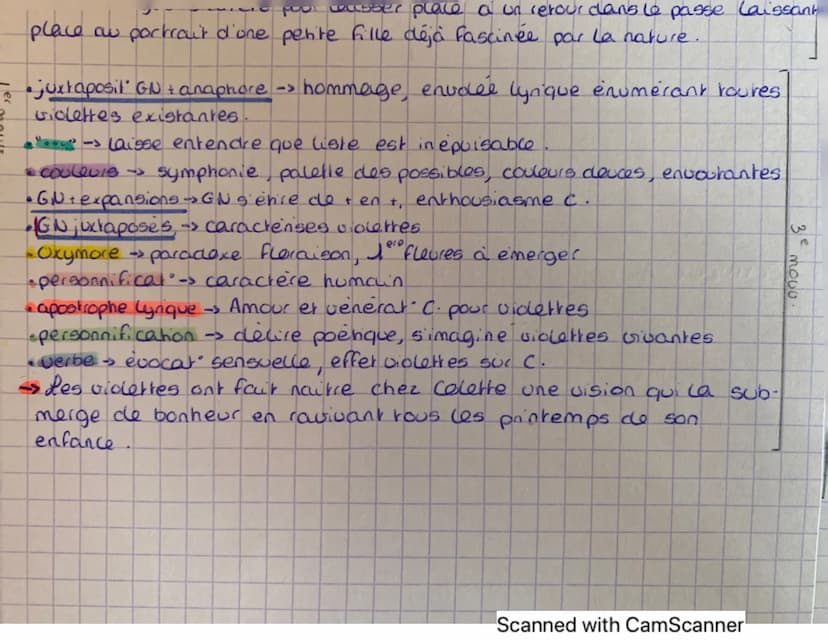 pour laisser place à un retour dans le passé laissant
place au portrait d'une petite fille déjà fascinée par la nature.
• juxtaposit° GN + anaphore -> hommage, envolée lyrique énumérant toutes
violettes existantes.
• "...." -> laisse entendre que liste est inépuisable.
• couleurs -> symphonie, palette des possibles, couleurs douces, envoutantes
• GN + expansions -> GN s'étire de + en +, enthousiasme C.
• GN juxtaposés -> caractérises violettes
• Oxymore -> paradoxe floraison, 1ere fleures à émerger
• personnificat° -> caractère humain
• apostrophe lyrique -> Amour et vénérat° C. pour violettes
• personnification -> délire poétique, s'imagine violettes vivantes
• verbe -> évocat° sensuelle, effet violettes sur C.
-> Les violettes ont fait naitre chez Colette une vision qui la sub-
merge de bonheur en ravivant tous les printemps de son
enfance.
3e mouv.
Scanned with CamScanner